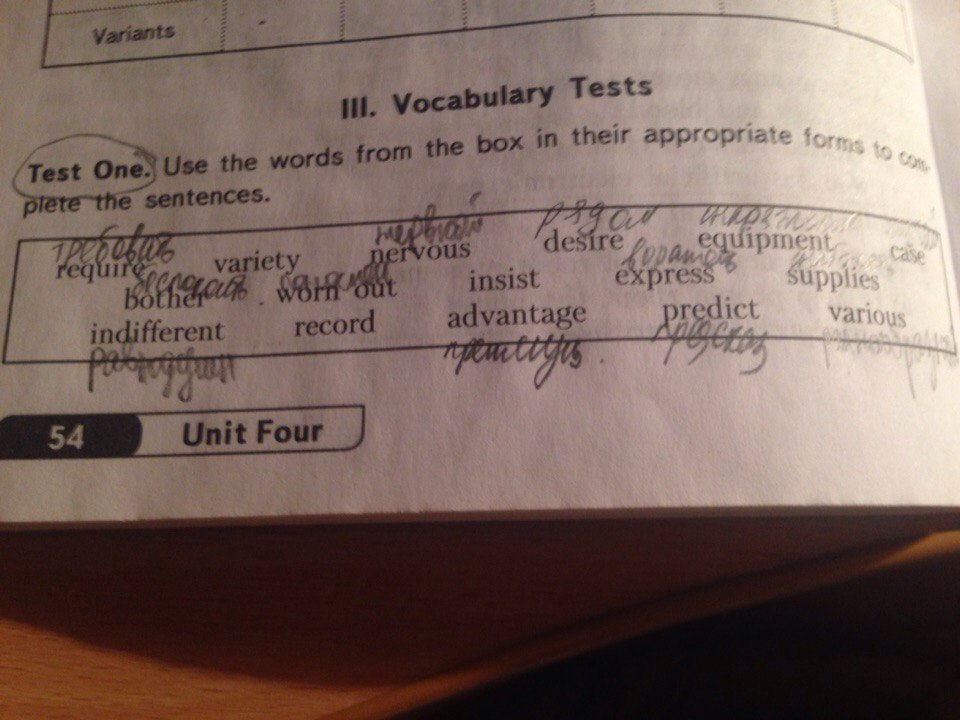 Variants
III. Vocabulary Tests
Test One. Use the words from the box in their appropriate forms to com-
plete the sentences.
требовать нервный
require variety nervous desire equipment case
bother worn out insist express supplies
indifferent record advantage predict various
54 Unit Four